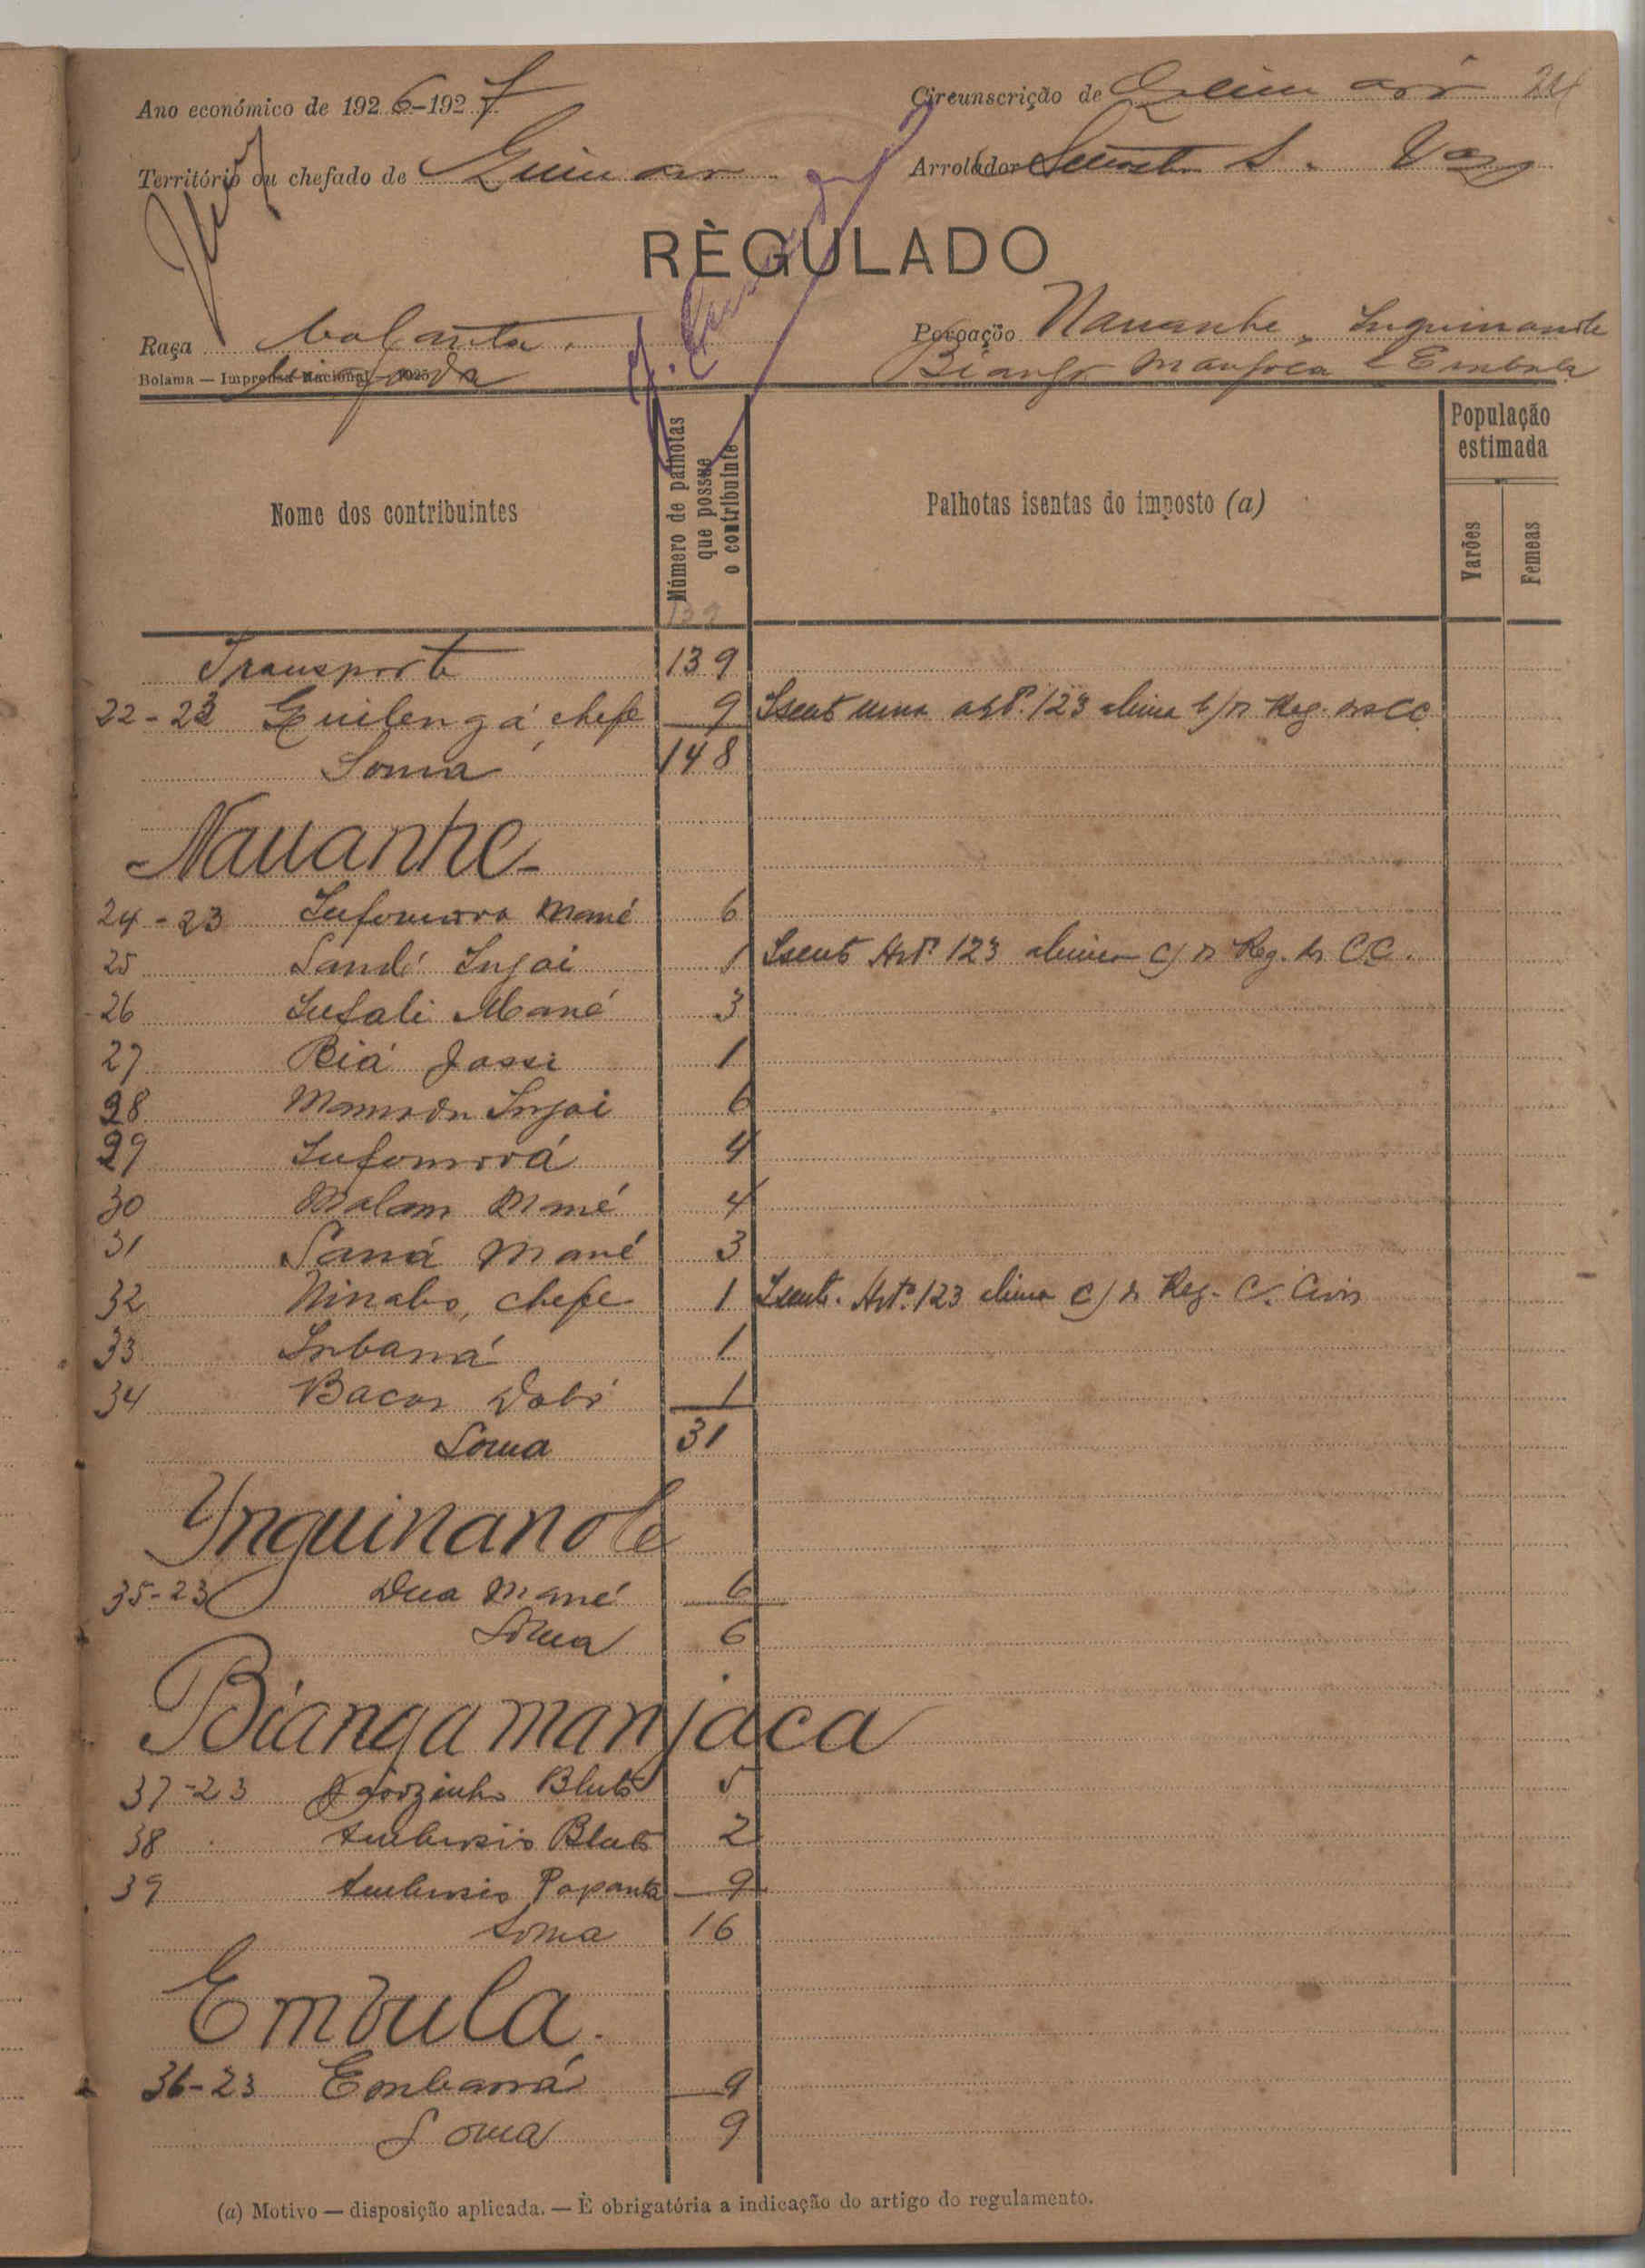 Ano económico de 1926-1927 Circunscrição de 24
Território ou chefado de Arrolador S. Vaz
RÈGULADO
Raça balanta Povoação Nauanhe, Inquinande
Bolama — Imprensa Nacional — 1925 Bianga manjaca e Embula
Nome dos contribuintes
Número de palhotas que possue o contribuinte
Palhotas isentas do imposto (a)
População estimada
Varões
Femeas
139
Transporte 139
22-23 Quilengá, chefe 9 Isento uma artº. 123 alinea b) do Reg. CC
Soma 148
Nauanhe
24-23 Mané 6
25 Sandé Injai 1 Isento Artº. 123 alinea c) do Reg. CC.
26 Sufali Mané 3
27 Biá Jassi 1
28 Mamadu Injai 6
29 4
30 Malam Mané 4
31 Saná Mané 3
32 Ninabo, chefe 1 Isento. Artº. 123 alinea c) do Reg. C. Civis
33 Inbaná 1
34 Bacar Dabó 1
Soma 31
Ynquinande
35-23 Dua Mané 6
Soma 6
Bianga manjaca
37-23 5
38 2
39 9
Soma 16
Embula.
36-23 Embaná 9
Soma 9
(a) Motivo — disposição aplicada. — È obrigatória a indicação do artigo do regulamento.